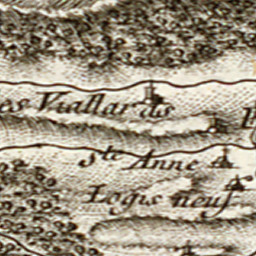 es Viallards
Ste Anne
Logis neuf